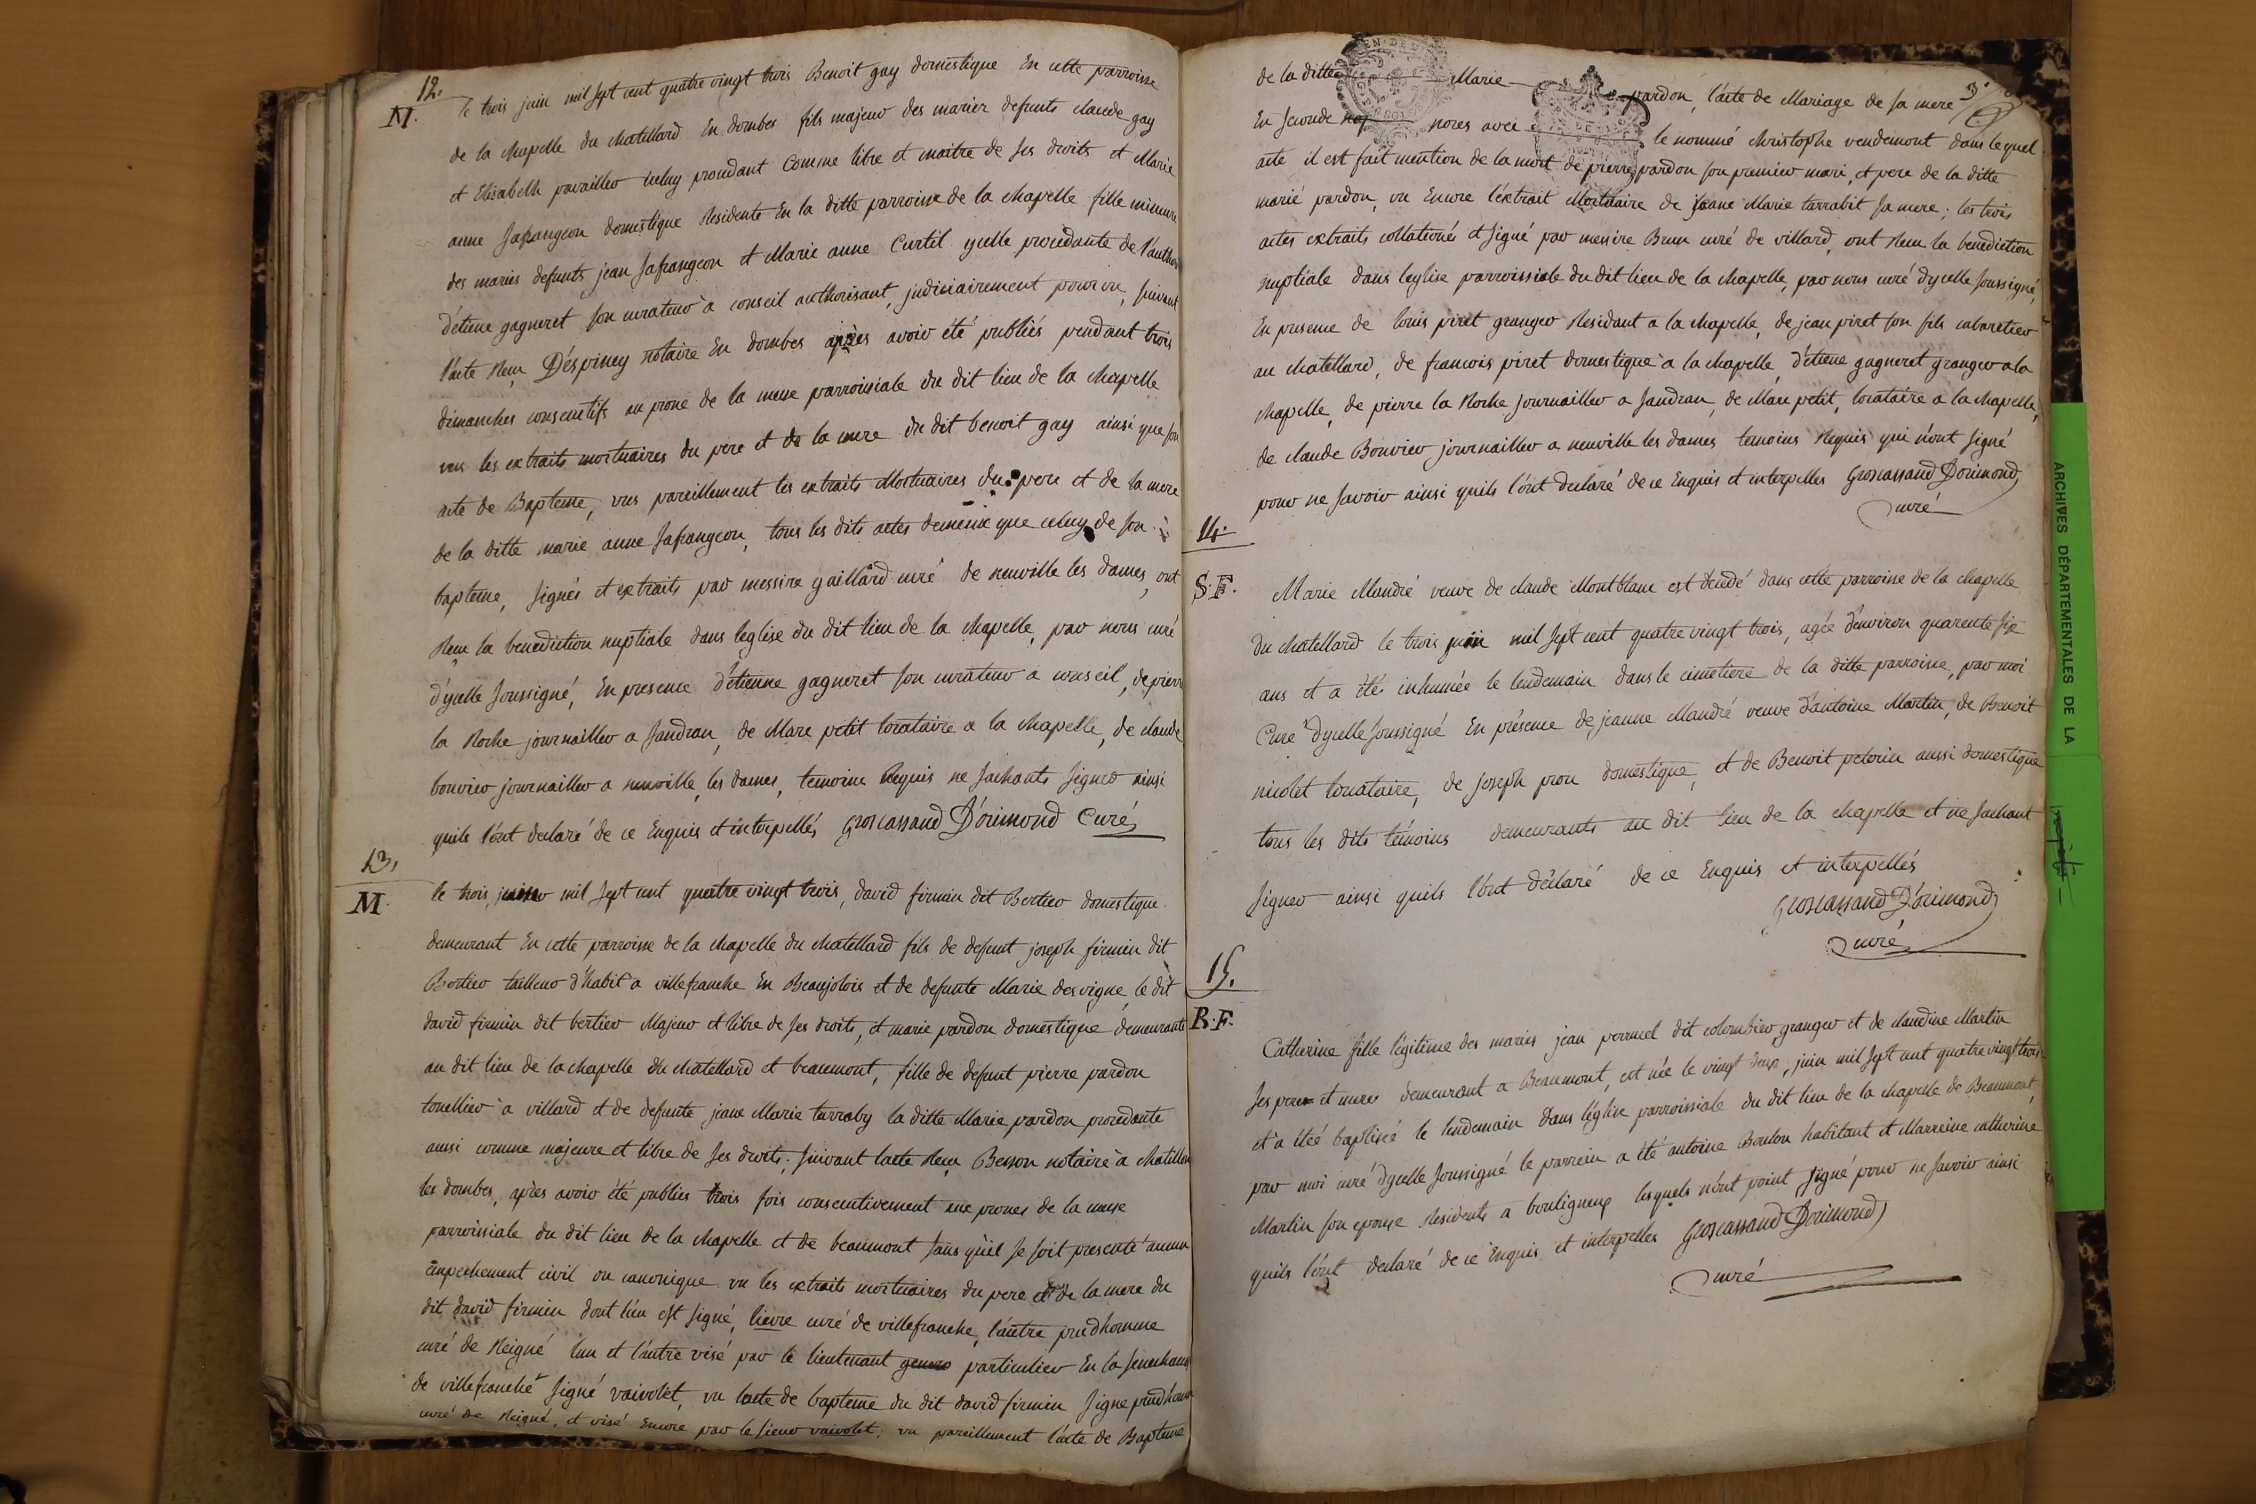 12.
M.
le trois juin mil sept cent quatre vingt trois Benoit gay domestique En cette parroisse
de la chapelle du chatellard En dombes fils majeur des mariez defunts claude gay
et Elisabeth pavaillier iceluy procedant Comme libre et maitre de ses droits et Marie
anne Jafrangeon domestique Residente En la ditte parroisse de la chapelle fille mineure
des mariés defunts jean Jafrangeon et Marie anne Curtil ycelle procedante de l'autho
d'étiene gagneret son curateur à conseil authorisant, judiciairement pourvu, suivant
l'acte Reçu Déspiney notaire En dombes après avoir été publiés pendant trois
dimanches consecutifs au prone de la messe parroissiale du dit lieu de la chapelle
vus les extraits mortuaires du pere et de la mere du dit benoit gay ainsi que son
acte de Bapteme, vus pareillement les extraits Mortuaires du pere et de la mere
de la ditte marie anne Jafrangeon, tous les dits actes demême que celuy de son
bapteme, signés et extraits par messire gaillard curé de neuville les dames, ont
Reçu la benediction nuptiale dans leglise du dit lieu de la chapelle, par nous curé
d'ycelle soussigné, En presence d'étienne gagneret son curateur a conseil, de pierre
la Roche journaillier a Sandran, de Marc petit locataire a la chapelle, de claude
bouvier journaillier a neuville les dames, temoins Requis ne sachants signer ainsi
quils l'ont declaré de ce Enquis et interpellés Groscassand D'orimond Curé
13.
M.
le trois, juin mil sept cent quatre vingt trois, david firmin dit Bertier domestique
demeurant En cette parroisse de la chapelle du chatellard fils de defunt joseph firmin dit
Bertier tailleur d'habit a villefranche En Beaujolois et de defunte Marie desvigne, le dit
david firmin dit bertier Majeur et libre de ses droits, et marie pardon domestique demeurante
au dit lieu de la chapelle du chatellard et beaumont, fille de defunt pierre pardon
tonellier à villard et de defunte jeane Marie tarraby la ditte Marie pardon procedante
aussi comme majeure et libre de ses droits. suivant l'acte Reçu Besson notaire a chatillon
les dombes, après avoir été publiés trois fois consecutivement aux prones de la messe
parroissiale du dit lieu de la chapelle et de beaumont sans qu'il se soit presenté aucun
empechement civil ou canonique vu les extraits mortuaires du pere et de la mere du
dit david firmin dont l'un est signé, lievre curé de villefranche, l'autre prudhomme
curé de Reigné l'un et l'autre visé par le lieutenant particulier En la senechaus
de villefranche signé vaivolet, vu l'acte de bapteme du dit david firmin signe prudhomme
curé de Reigné, et visé Encore par le sieur vaivolet; vu pareillement l'acte de Bapteme
de la ditte Marie pardon, l'acte de Mariage de sa mere 3.
En seconde noces avec le nommé christophe vendemont dans lequel
acte il est fait mention de la mort de pierre pardon son premier mari, et pere de la ditte
marié pardon, vu Encore l'extrait Mortuaire de jeane Marie tarrabit sa mere; les trois
actes extraits collationés et signé par messire Brun curé de villard, ont Reçu la benediction
nuptiale dans leglise parroissiale du dit lieu de la chapelle, par nous curé d'ycelle soussigné,
En presence de louis piret granger Residant a la chapelle, de jean piret son fils cabaretier
au chatellard, de francois piret domestique a la chapelle, d'étiene gagneret granger a la
chapelle, de pierre la Roche journaillier a Sandran, de Marc petit, locataire a la chapelle,
de claude Bouvier journaillier a neuville les dames temoins Requis qui n'ont signé
pour ne savoir ainsi quils l'ont declaré de ce Enquis et interpelles Groscassand D'orimond
curé
14.
S.F.
Marie Mandré veuve de claude Montblanc est decedé dans cette parroisse de la chapelle
du chatellard le trois juin mil sept cent quatre vingt trois, agée d'environ quarente six
ans et a étés inhumée le lendemain dans le cimetiere de la ditte parroisse, par moi
Curé d'ycelle soussigné En présence de jeanne Mandré veuve d'antoine Martin, de Benoit
nicolet locataire, de joseph pron domestique, et de Benoit pelorin aussi domestique
tous les dits témoins demeurants au dit lieu de la chapelle et ne sachant
signer ainsi quils l'ont déclaré de ce Enquis et interpellés
Groscassand D'orimond
curé
15.
B.F.
Catherine fille légitime des mariés jean perruel dit colombier granger et de claudine Martin
ses pere et mere demeurant a Beaumont, est née le vingt deux, juin mil sept cent quatre vingt trois
et a étéé baptiséé le lendemain dans l'église parroissiale du dit lieu de la chapelle de Beaumont,
par moi curé d'ycelle soussigné le parrein a été antoine Boulon habitant et Marreine catherine
Martin son epouse Residents a bouligneux lesquels n'ont point signé pour ne savoir ainsi
quils l'ont declaré de ce Enquis et interpelles Groscassand D'orimond
curé
ARCHIVES DÉPARTEMENTALES DE LA